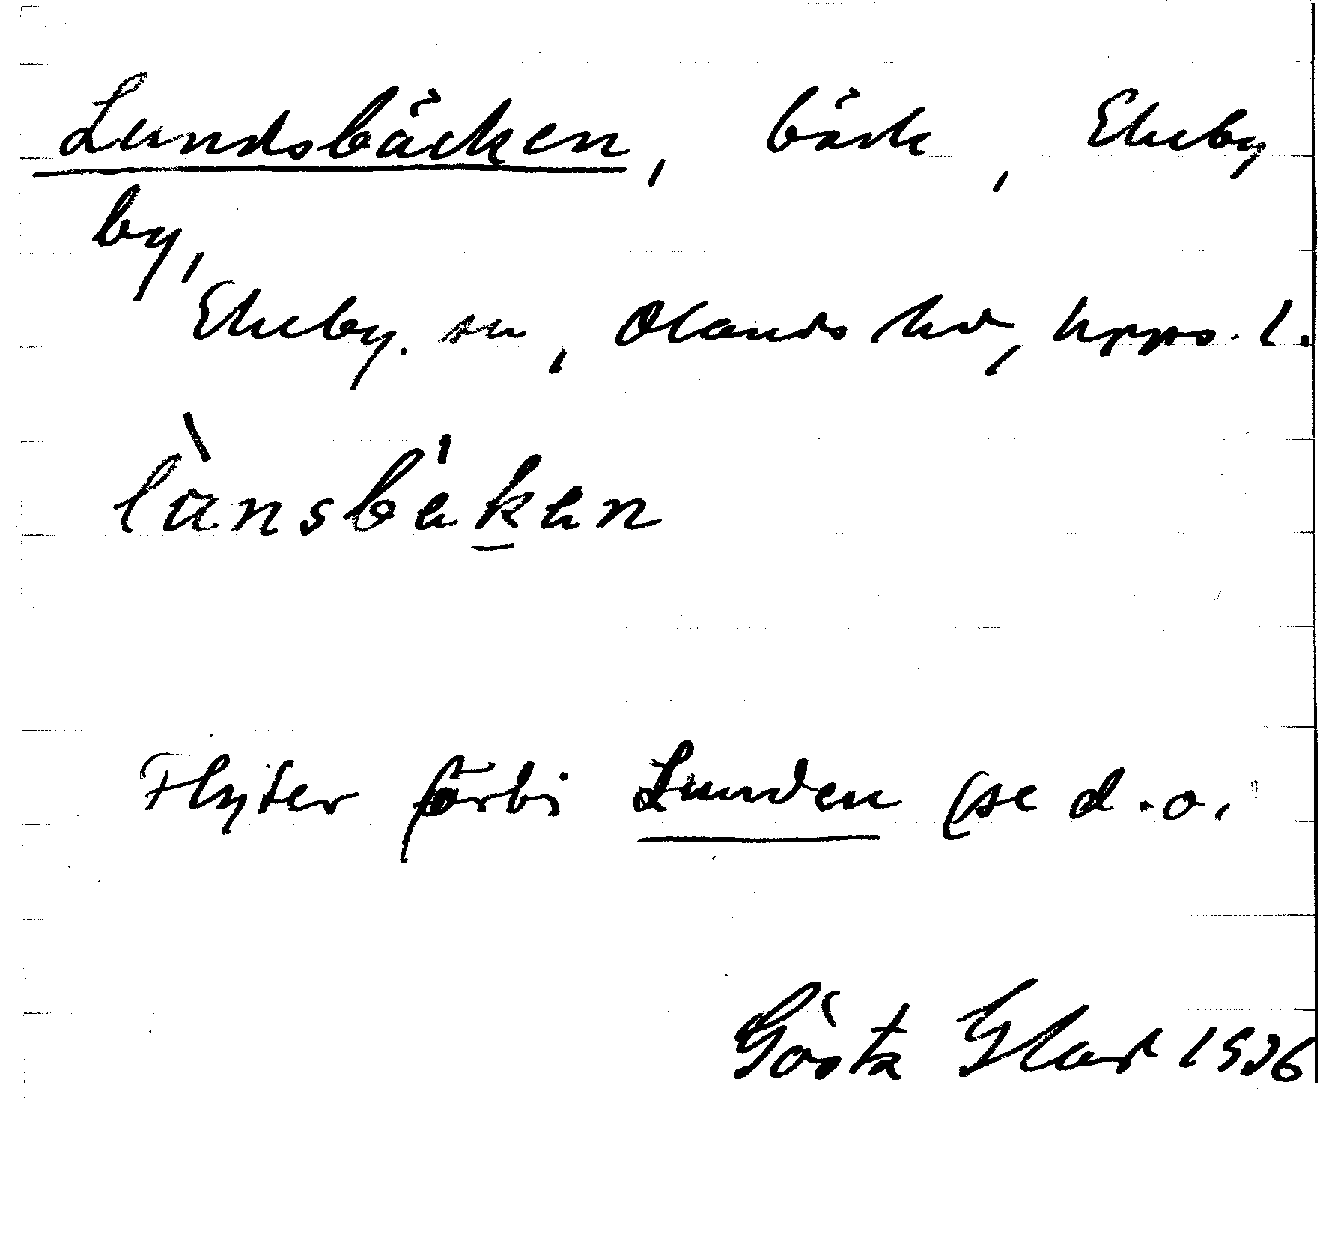 Lundsbäcken, bäck, Ekeby
by,
Ekeby. sn, Olands hd, Upps. l.
lànsbäkan
Flyter förbi Lunden (se d.o.
Gösta Glad 1936